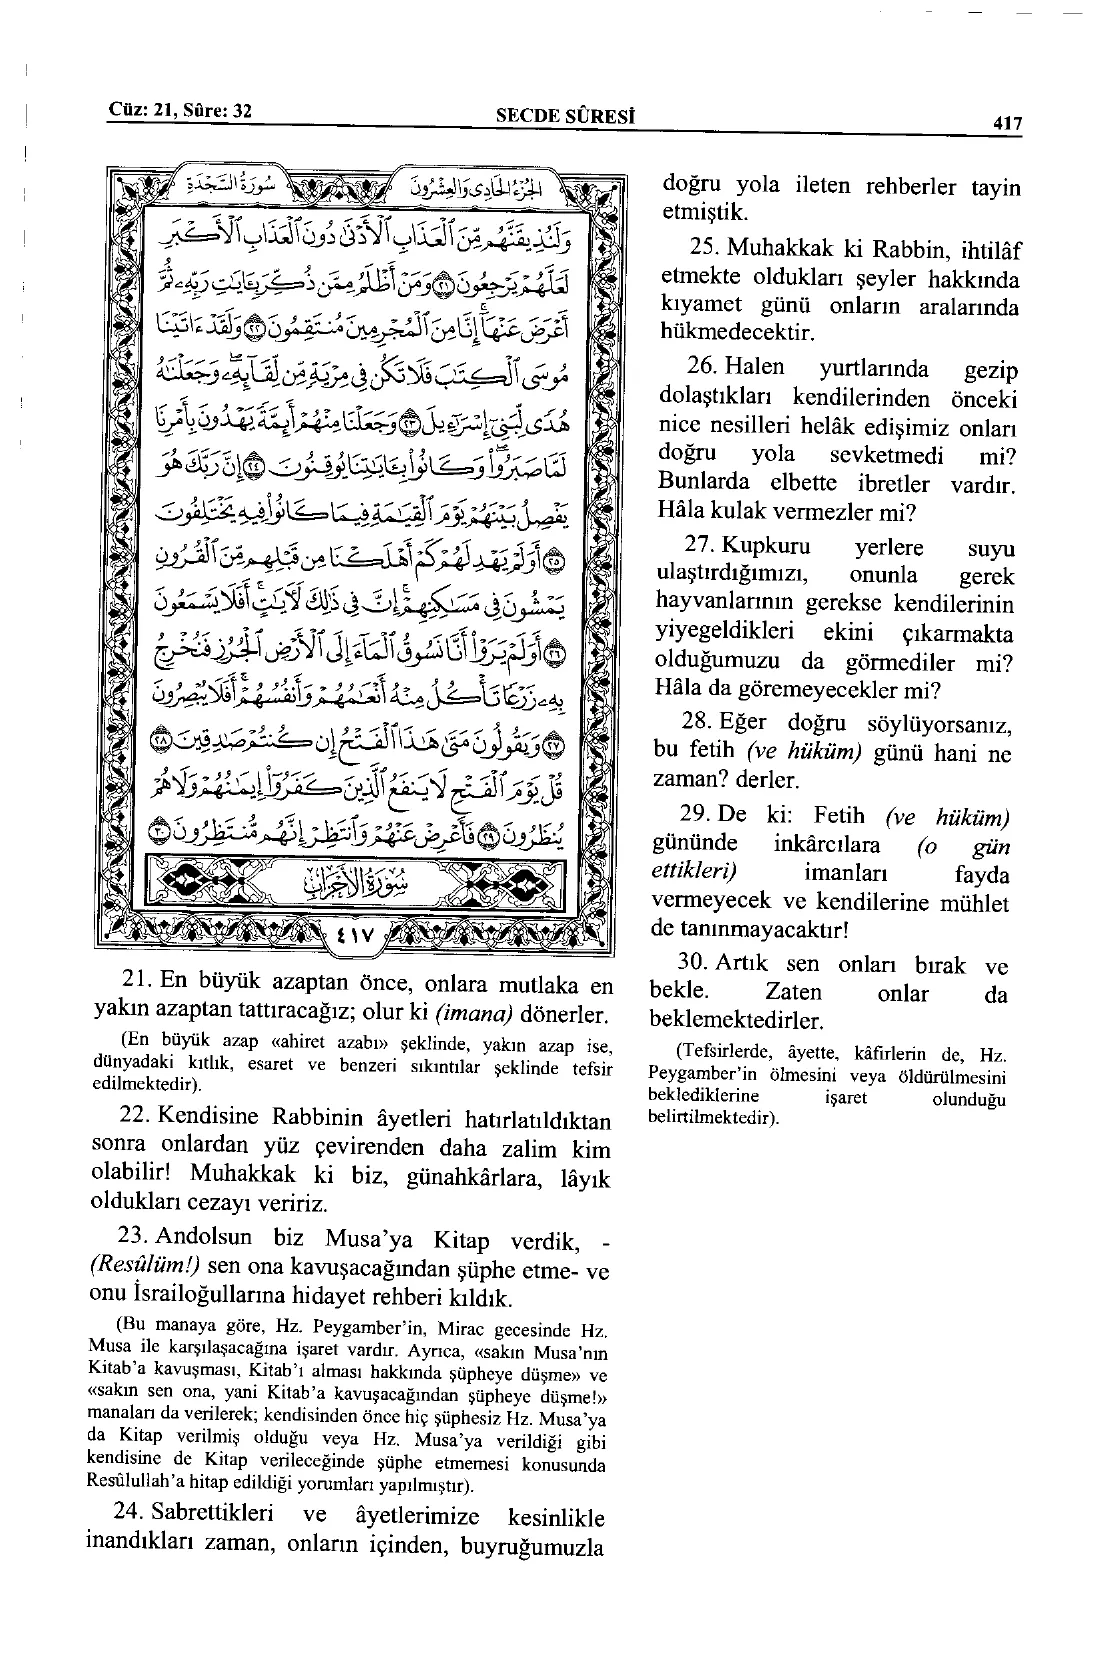 Cüz: 21, Sûre: 32
SECDE SÛRESİ
417
سُورَةُ السَّجْدَةِ
الجُزْءُ الحَادِي وَالعِشْرُونَ
وَلَنُذِيقَنَّهُم مِّنَ ٱلْعَذَابِ ٱلْأَدْنَىٰ دُونَ ٱلْعَذَابِ ٱلْأَكْبَرِ
لَعَلَّهُمْ يَرْجِعُونَ ٢١ وَمَنْ أَظْلَمُ مِمَّن ذُكِّرَ بِـَٔايَٰتِ رَبِّهِۦ ثُمَّ
أَعْرَضَ عَنْهَآ إِنَّا مِنَ ٱلْمُجْرِمِينَ مُنتَقِمُونَ ٢٢ وَلَقَدْ ءَاتَيْنَا
مُوسَى ٱلْكِتَٰبَ فَلَا تَكُن فِى مِرْيَةٍ مِّن لِّقَآئِهِۦ وَجَعَلْنَٰهُ
هُدًى لِّبَنِىٓ إِسْرَٰٓءِيلَ ٢٣ وَجَعَلْنَا مِنْهُمْ أَئِمَّةً يَهْدُونَ بِأَمْرِنَا
لَمَّا صَبَرُوا۟ وَكَانُوا۟ بِـَٔايَٰتِنَا يُوقِنُونَ ٢٤ إِنَّ رَبَّكَ هُوَ
يَفْصِلُ بَيْنَهُمْ يَوْمَ ٱلْقِيَٰمَةِ فِيمَا كَانُوا۟ فِيهِ يَخْتَلِفُونَ
٢٥ أَوَلَمْ يَهْدِ لَهُمْ كَمْ أَهْلَكْنَا مِن قَبْلِهِم مِّنَ ٱلْقُرُونِ
يَمْشُونَ فِى مَسَٰكِنِهِمْ إِنَّ فِى ذَٰلِكَ لَـَٔايَٰتٍ أَفَلَا يَسْمَعُونَ
٢٦ أَوَلَمْ يَرَوْا۟ أَنَّا نَسُوقُ ٱلْمَآءَ إِلَى ٱلْأَرْضِ ٱلْجُرُزِ فَنُخْرِجُ
بِهِۦ زَرْعًا تَأْكُلُ مِنْهُ أَنْعَٰمُهُمْ وَأَنفُسُهُمْ أَفَلَا يُبْصِرُونَ
٢٧ وَيَقُولُونَ مَتَىٰ هَٰذَا ٱلْفَتْحُ إِن كُنتُمْ صَٰدِقِينَ ٢٨
قُلْ يَوْمَ ٱلْفَتْحِ لَا يَنفَعُ ٱلَّذِينَ كَفَرُوٓا۟ إِيمَٰنُهُمْ وَلَا هُمْ
يُنظَرُونَ ٢٩ فَأَعْرِضْ عَنْهُمْ وَٱنتَظِرْ إِنَّهُم مُّنتَظِرُونَ ٣٠
سُورَةُ الأَحْزَابِ
٤١٧
21. En büyük azaptan önce, onlara mutlaka en
yakın azaptan tattıracağız; olur ki (imana) dönerler.
(En büyük azap «ahiret azabı» şeklinde, yakın azap ise,
dünyadaki kıtlık, esaret ve benzeri sıkıntılar şeklinde tefsir
edilmektedir).
22. Kendisine Rabbinin âyetleri hatırlatıldıktan
sonra onlardan yüz çevirenden daha zalim kim
olabilir! Muhakkak ki biz, günahkârlara, lâyık
oldukları cezayı veririz.
23. Andolsun biz Musa'ya Kitap verdik, -
(Resûlüm!) sen ona kavuşacağından şüphe etme- ve
onu İsrailoğullarına hidayet rehberi kıldık.
(Bu manaya göre, Hz. Peygamber'in, Mirac gecesinde Hz.
Musa ile karşılaşacağına işaret vardır. Ayrıca, «sakın Musa'nın
Kitab'a kavuşması, Kitab'ı alması hakkında şüpheye düşme» ve
«sakın sen ona, yani Kitab'a kavuşacağından şüpheye düşme!»
manaları da verilerek; kendisinden önce hiç şüphesiz Hz. Musa'ya
da Kitap verilmiş olduğu veya Hz. Musa'ya verildiği gibi
kendisine de Kitap verileceğinde şüphe etmemesi konusunda
Resûlullah'a hitap edildiği yorumları yapılmıştır).
24. Sabrettikleri ve âyetlerimize kesinlikle
inandıkları zaman, onların içinden, buyruğumuzla
doğru yola ileten rehberler tayin
etmiştik.
25. Muhakkak ki Rabbin, ihtilâf
etmekte oldukları şeyler hakkında
kıyamet günü onların aralarında
hükmedecektir.
26. Halen yurtlarında gezip
dolaştıkları kendilerinden önceki
nice nesilleri helâk edişimiz onları
doğru yola sevketmedi mi?
Bunlarda elbette ibretler vardır.
Hâla kulak vermezler mi?
27. Kupkuru yerlere suyu
ulaştırdığımızı, onunla gerek
hayvanlarının gerekse kendilerinin
yiyegeldikleri ekini çıkarmakta
olduğumuzu da görmediler mi?
Hâla da göremeyecekler mi?
28. Eğer doğru söylüyorsanız,
bu fetih (ve hüküm) günü hani ne
zaman? derler.
29. De ki: Fetih (ve hüküm)
gününde inkârcılara (o gün
ettikleri) imanları fayda
vermeyecek ve kendilerine mühlet
de tanınmayacaktır!
30. Artık sen onları bırak ve
bekle. Zaten onlar da
beklemektedirler.
(Tefsirlerde, âyette, kâfirlerin de, Hz.
Peygamber'in ölmesini veya öldürülmesini
beklediklerine işaret olunduğu
belirtilmektedir).